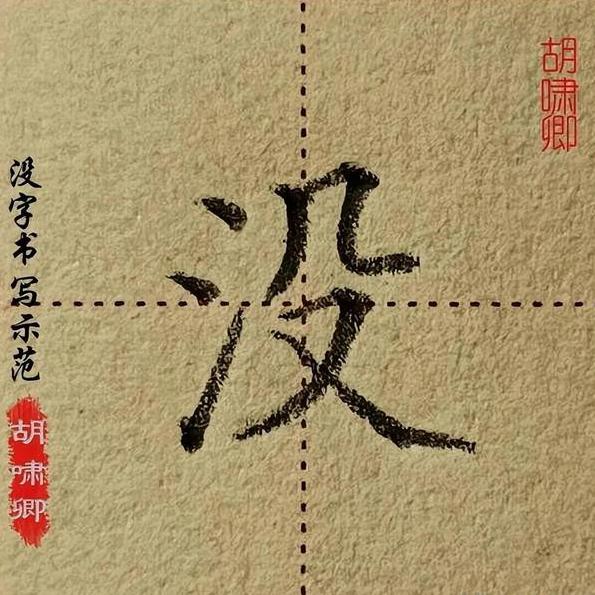 没
没字书写示范
胡啸卿
胡啸卿